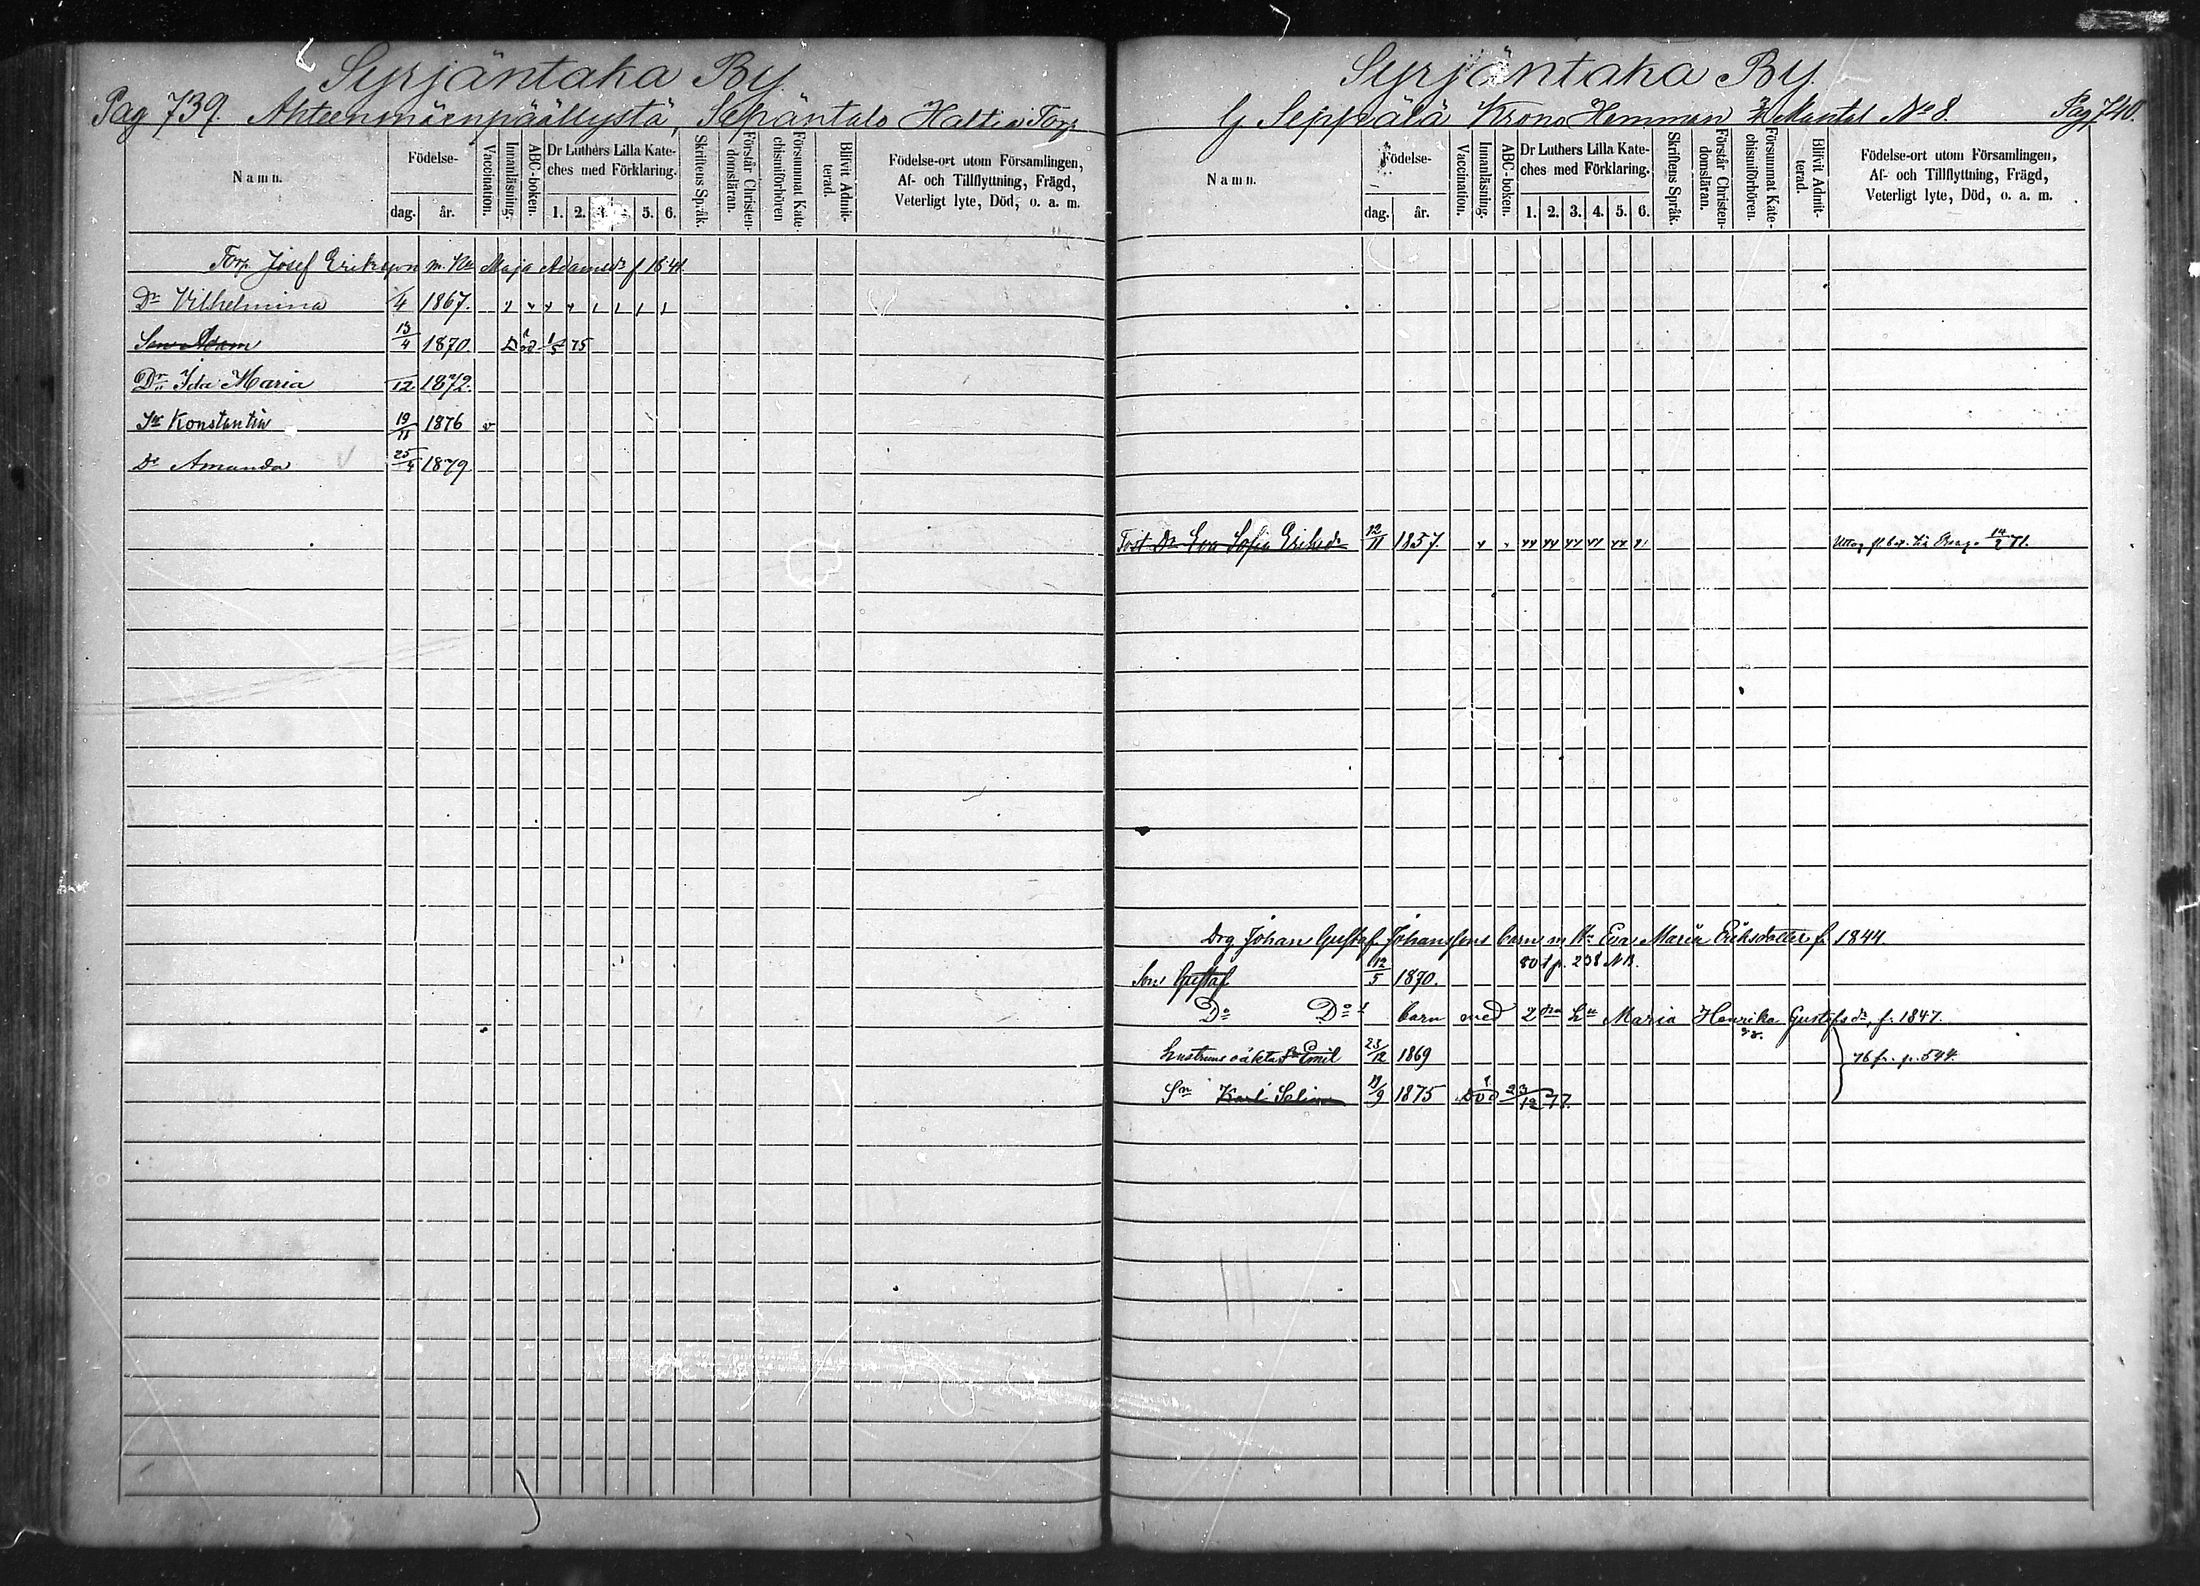 Syrjäntaka By
Pag 739. Ahteenmäenpäällystä, Sepäntalo Haltia Torp
Namn.
Födelse-
dag. år.
Vaccination.
Innanläsning.
ABC-boken.
Dr Luthers Lilla Kate-
ches med Förklaring.
1. 2. 3. 4. 5. 6.
Skriftens Språk.
Förstår Christen-
domsläran.
Försummat Kate-
chismiförhören
Blifvit Admit-
terad.
Födelse-ort utom Församlingen,
Af- och Tillflyttning, Frägd,
Veterligt lyte, Död, o. a. m.
Torp Josef Erikson m. Hu Maja Adamsdr f 1841
Dr Vilhelmina 1/4 1867.
Son Adam 13/4 1870 Död 1/5 75
Dr Ida Maria /12 1872.
Sn Konstantin 19/11 1876 v
Dr Amanda 25/4 1879
Syrjäntaka By
G Seppälä Krono Hemman Mantal No 8. Pag 740.
Namn.
Födelse-
dag. år.
Vaccination.
Innanläsning.
ABC-boken.
Dr Luthers Lilla Kate-
ches med Förklaring.
1. 2. 3. 4. 5. 6.
Skriftens Språk.
Förstår Christen-
domsläran.
Försummat Kate-
chismiförhören.
Blifvit Admit-
terad.
Födelse-ort utom Församlingen,
Af- och Tillflyttning, Frägd,
Veterligt lyte, Död, o. a. m.
Fost Dr Eva Sofia Eriksdr 12/11 1857. Uttog fl. bet. 14/2 71.
Drg Johan Gustaf Johanssons barn m Hu Eva Maria Eriksdotter f. 1844.
Son Gustaf 12/5 1870. 80 t p. 238 NB.
Do Do barn med 2dra hu Maria Henrika Gustafsdr, f. 1847.
hustruns oäkta Sn Emil 23/12 1869 76 fr. p. 544.
Sn Karl Selim 11/9 1875 Död 23/12 77.